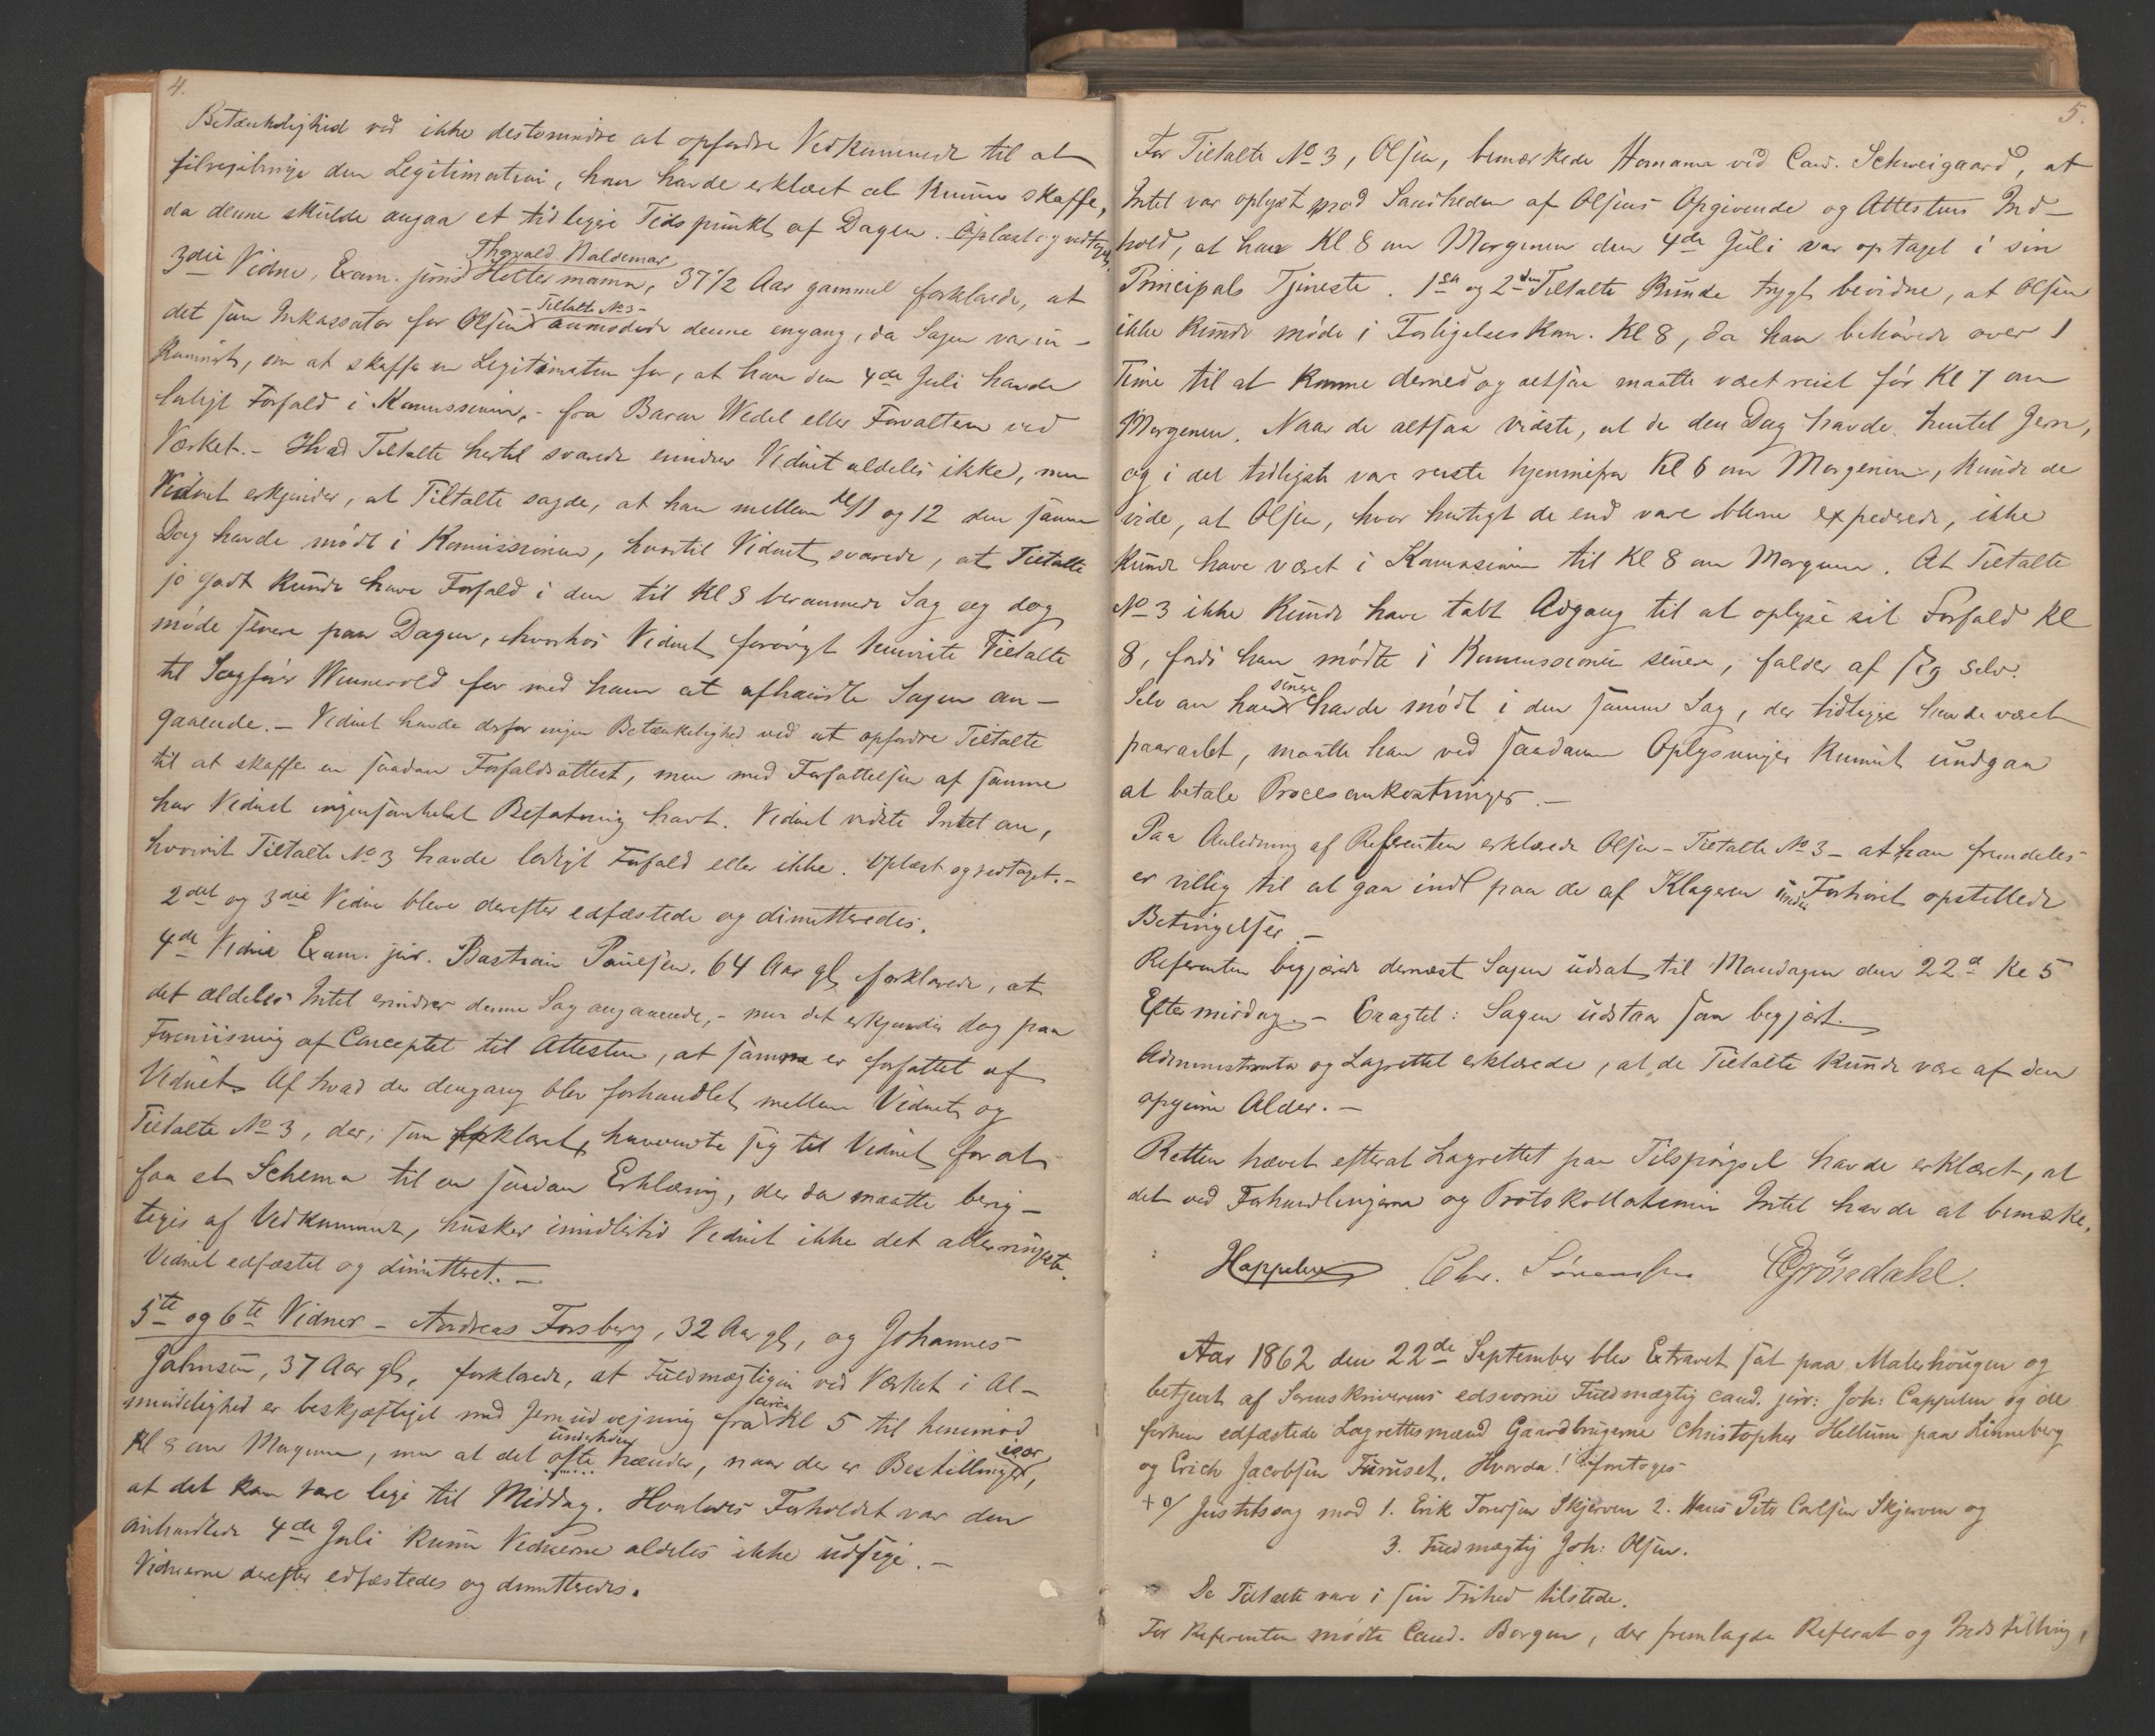 4.
Betænkelighed ved ikke destomindre at opfordre Vedkommende til at
tilvejebringe den Legitimation, han havde erklæret at kunne skaffe,
da denne skulde angaa et tidligere Tidspunkt af Dagen. Oplæst og vedtaget.
3die Vidne, Exam. juris Thorvald Waldemar Hottermann, 37 1/2 Aar gammel forklarede, at
det som Inkassator for Olsen - Tiltalte No 3 - anmodede denne engang, da Sagen var in-
kamineret, om at skaffe en Legitimation for, at han den 4de Juli havde
lovligt Forfald i Kommissionen, - fra Baron Wedel eller Forvalteren ved
Værket. - Hvad Tiltalte hertil svarede erindrer Vidnet aldeles ikke, men
Vidnet erkjender, at Tiltalte sagde, at han mellem Kl 11 og 12 den samme
Dag havde mødt i Kommissionen, hvortil Vidnet svarede, at Tiltalte
jo godt kunde have Forfald i den til Kl 8 berammede Sag og dog
møde senere paa Dagen, hvorhos Vidnet forøvrigt henviste Tiltalte
til Sagfører Winnerold for med ham at afhandle Sagen an-
gaaende. - Vidnet havde derfor ingen Betænkelighed ved at opfordre Tiltalte
til at skaffe en saadan Forfaldsattest, men med Forfattelsen af samme
har Vidnet ingensomhelst Befatning havt. Vidnet vidste Intet om,
hvorvidt Tiltalte No 3 havde lovligt Forfald eller ikke. Oplæst og vedtaget. -
2det og 3die Vidne bleve derefter edfæstede og dimitteredes.
4de Vidne Exam. jur. Bastian Paulsen, 64 Aar gl, forklarede, at
det aldeles Intet erindrer denne Sag angaaende, - men det erkjender dog paa
Foreviisning af Conceptet til Attesten, at samme er forfattet af
Vidnet. Af hvad der dengang blev forhandlet mellem Vidnet og
Tiltalte No 3, der, som forklaret, henvendte sig til Vidnet for at
faa et Schema til en saadan Erklæring, der da maatte berig-
tiges af Vedkommende, husker imidlertid Vidnet ikke det allerringeste.
Vidnet edfæstet og dimitteret. -
5te og 6te Vidner - Andreas Forsberg, 32 Aar gl, og Johannes
Johnsen, 37 Aar gl, forklarede, at Fuldmægtigen ved Værket i Al-
mindelighed er beskjæftiget med Jernudvejning fra circa Kl 5 til henimod
Kl 8 om Morgenen, men at det ofte underhaanden hænder, naar der er Bestillinger,
at det kan vare lige til Middag. Hvorledes Forholdet var den
omhandlede 4de Juli kunne Vidnerne aldeles ikke udsige. -
Vidnerne derefter edfæstedes og dimitteredes.
5.
For Tiltalte No 3, Olsen, bemærkede Homann ved Cand. Schweigaard, at
Intet var oplyst mod Sandheden af Olsens Opgivende og Attestens Ind-
hold, at han Kl 8 om Morgenen den 4de Juli var optaget i sin
Principals Tjeneste. 1ste og 2den Tiltalte kunde trygt bevidne, at Olsen
ikke kunde møde i Forligelseskom. Kl 8, da han behøvede over 1
Time til at komme derned og altsaa maatte været reist før Kl 7 om
Morgenen. Naar de altsaa vidste, at de den Dag havde hentet Jern,
og i det tidligste vare reiste hjemmefra Kl 6 om Morgenen, kunde de
vide, at Olsen, hvor hurtigt de end vare blevne expederede, ikke
kunde have været i Kommissionen til Kl 8 om Morgenen. At Tiltalte
No 3 ikke kunde have tabt Adgang til at oplyse sit Forfald Kl
8, fordi han mødte i Kommissionen senere, falder af sig selv.
Selv om han senere havde mødt i den samme Sag, der tidligere havde været
paaraabt, maatte han ved saadanne Oplysninger kunnet undgaa
at betale Procesomkostninger. -
Paa Anledning af Referenten erklærede Olsen - Tiltalte No 3 - at han fremdeles
er villig til at gaa ind paa de af Klageren under Forhøret opstillede
Betingelser. -
Referenten begjærede dernæst Sagen udsat til Mandagen den 22de Kl 5
Eftermiddag. - Eragtet: Sagen udstaar som begjært.
Administrator og Lagrettet erklærede, at de Tiltalte kunde være af den
opgivne Alder. -
Retten hævet efterat Lagrettet paa Tilspørgsel havde erklæret, at
det ved Forhandlingerne og Protokollationen Intet havde at bemærke.
Chr. Sørensen Grøndahl.
Aar 1862 den 22de September blev Extraret sat paa Malerhougen og
betjent af Sorenskriverens edsvorne Fuldmægtig cand. jur: Joh: Cappelen og de
forhen edfæstede Lagrettesmænd Gaardbrugerne Christopher Hellum paa Linneberg
og Erich Jacobsen Furuset. Hvorda! foretoges
Justitssag mod 1. Erik Torersen Skjerven 2. Hans Peter Carlsen Skjerven og
3. Fuldmægtig Joh: Olsen.
De Tiltalte vare i sin Frihed tilstede.
For Referenten mødte Cand. Borgen, der fremlagde Referat og Indstilling,